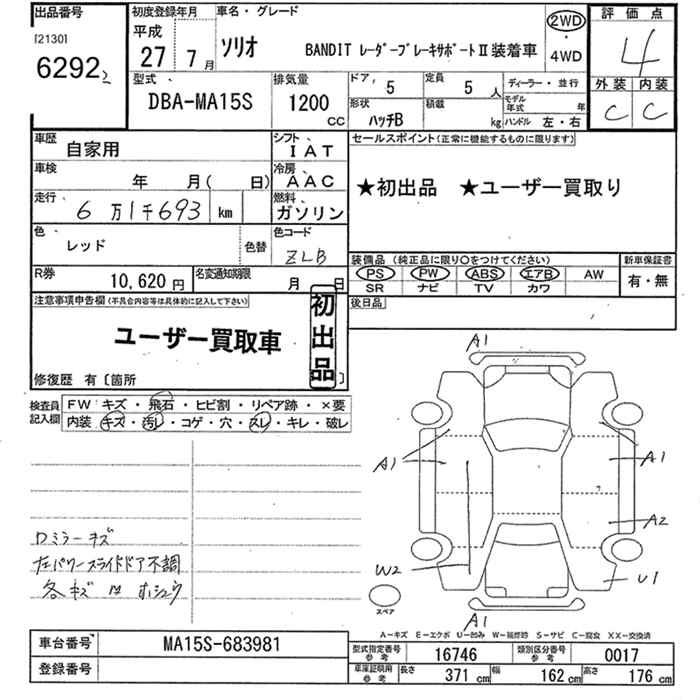 出品番号
[2130]
6292 2
初度登録年月
平成
27 7月
車名・グレード
ソリオ BANDIT レーダーブレーキサポートⅡ装着車
2WD
・
4WD
評価点
4
外装 内装
C C
型式
DBA-MA15S
排気量
1200
CC
ドア
5
定員
5人
形状
ハッチB
積載
kg
ディーラー・並行
モデル年式 年
ハンドル 左・右
車歴
自家用
シフト
IAT
車検
年 月( 日)
冷房
AAC
走行
6万1千693 km
燃料
ガソリン
色
レッド
色替
色コード
ZLB
R券
10,620円
名変通知期限
月 日
セールスポイント(正常に機能するものに限ります)
★初出品 ★ユーザー買取り
装備品(純正品に限り〇をつけてください)
PS PW ABS エアB AW
SR ナビ TV カワ
新車保証書
有・無
後日品
注意事項申告欄(不具合内容等は具体的に記入して下さい)
ユーザー買取車
初出品
修復歴 有〔箇所 〕
検査員記入欄
FW キズ・飛石・ヒビ割・リペア跡・×要
内装 キズ・汚レ・コゲ・穴・スレ・キレ・破レ
Dミラーキズ
左パワースライドドア不調
各キズ凹ホシュウ
A1
A1
A1
A2
W2
U1
A1
スペア
A-キズ E-エクボ U-凹み W-補修跡 S-サビ C-腐食 XX-交換済
車台番号
MA15S-683981
登録番号
型式指定番号 参考
16746
類別区分番号 参考
0017
車庫証明用 参考
長さ 371 cm 幅 162 cm 高さ 176 cm